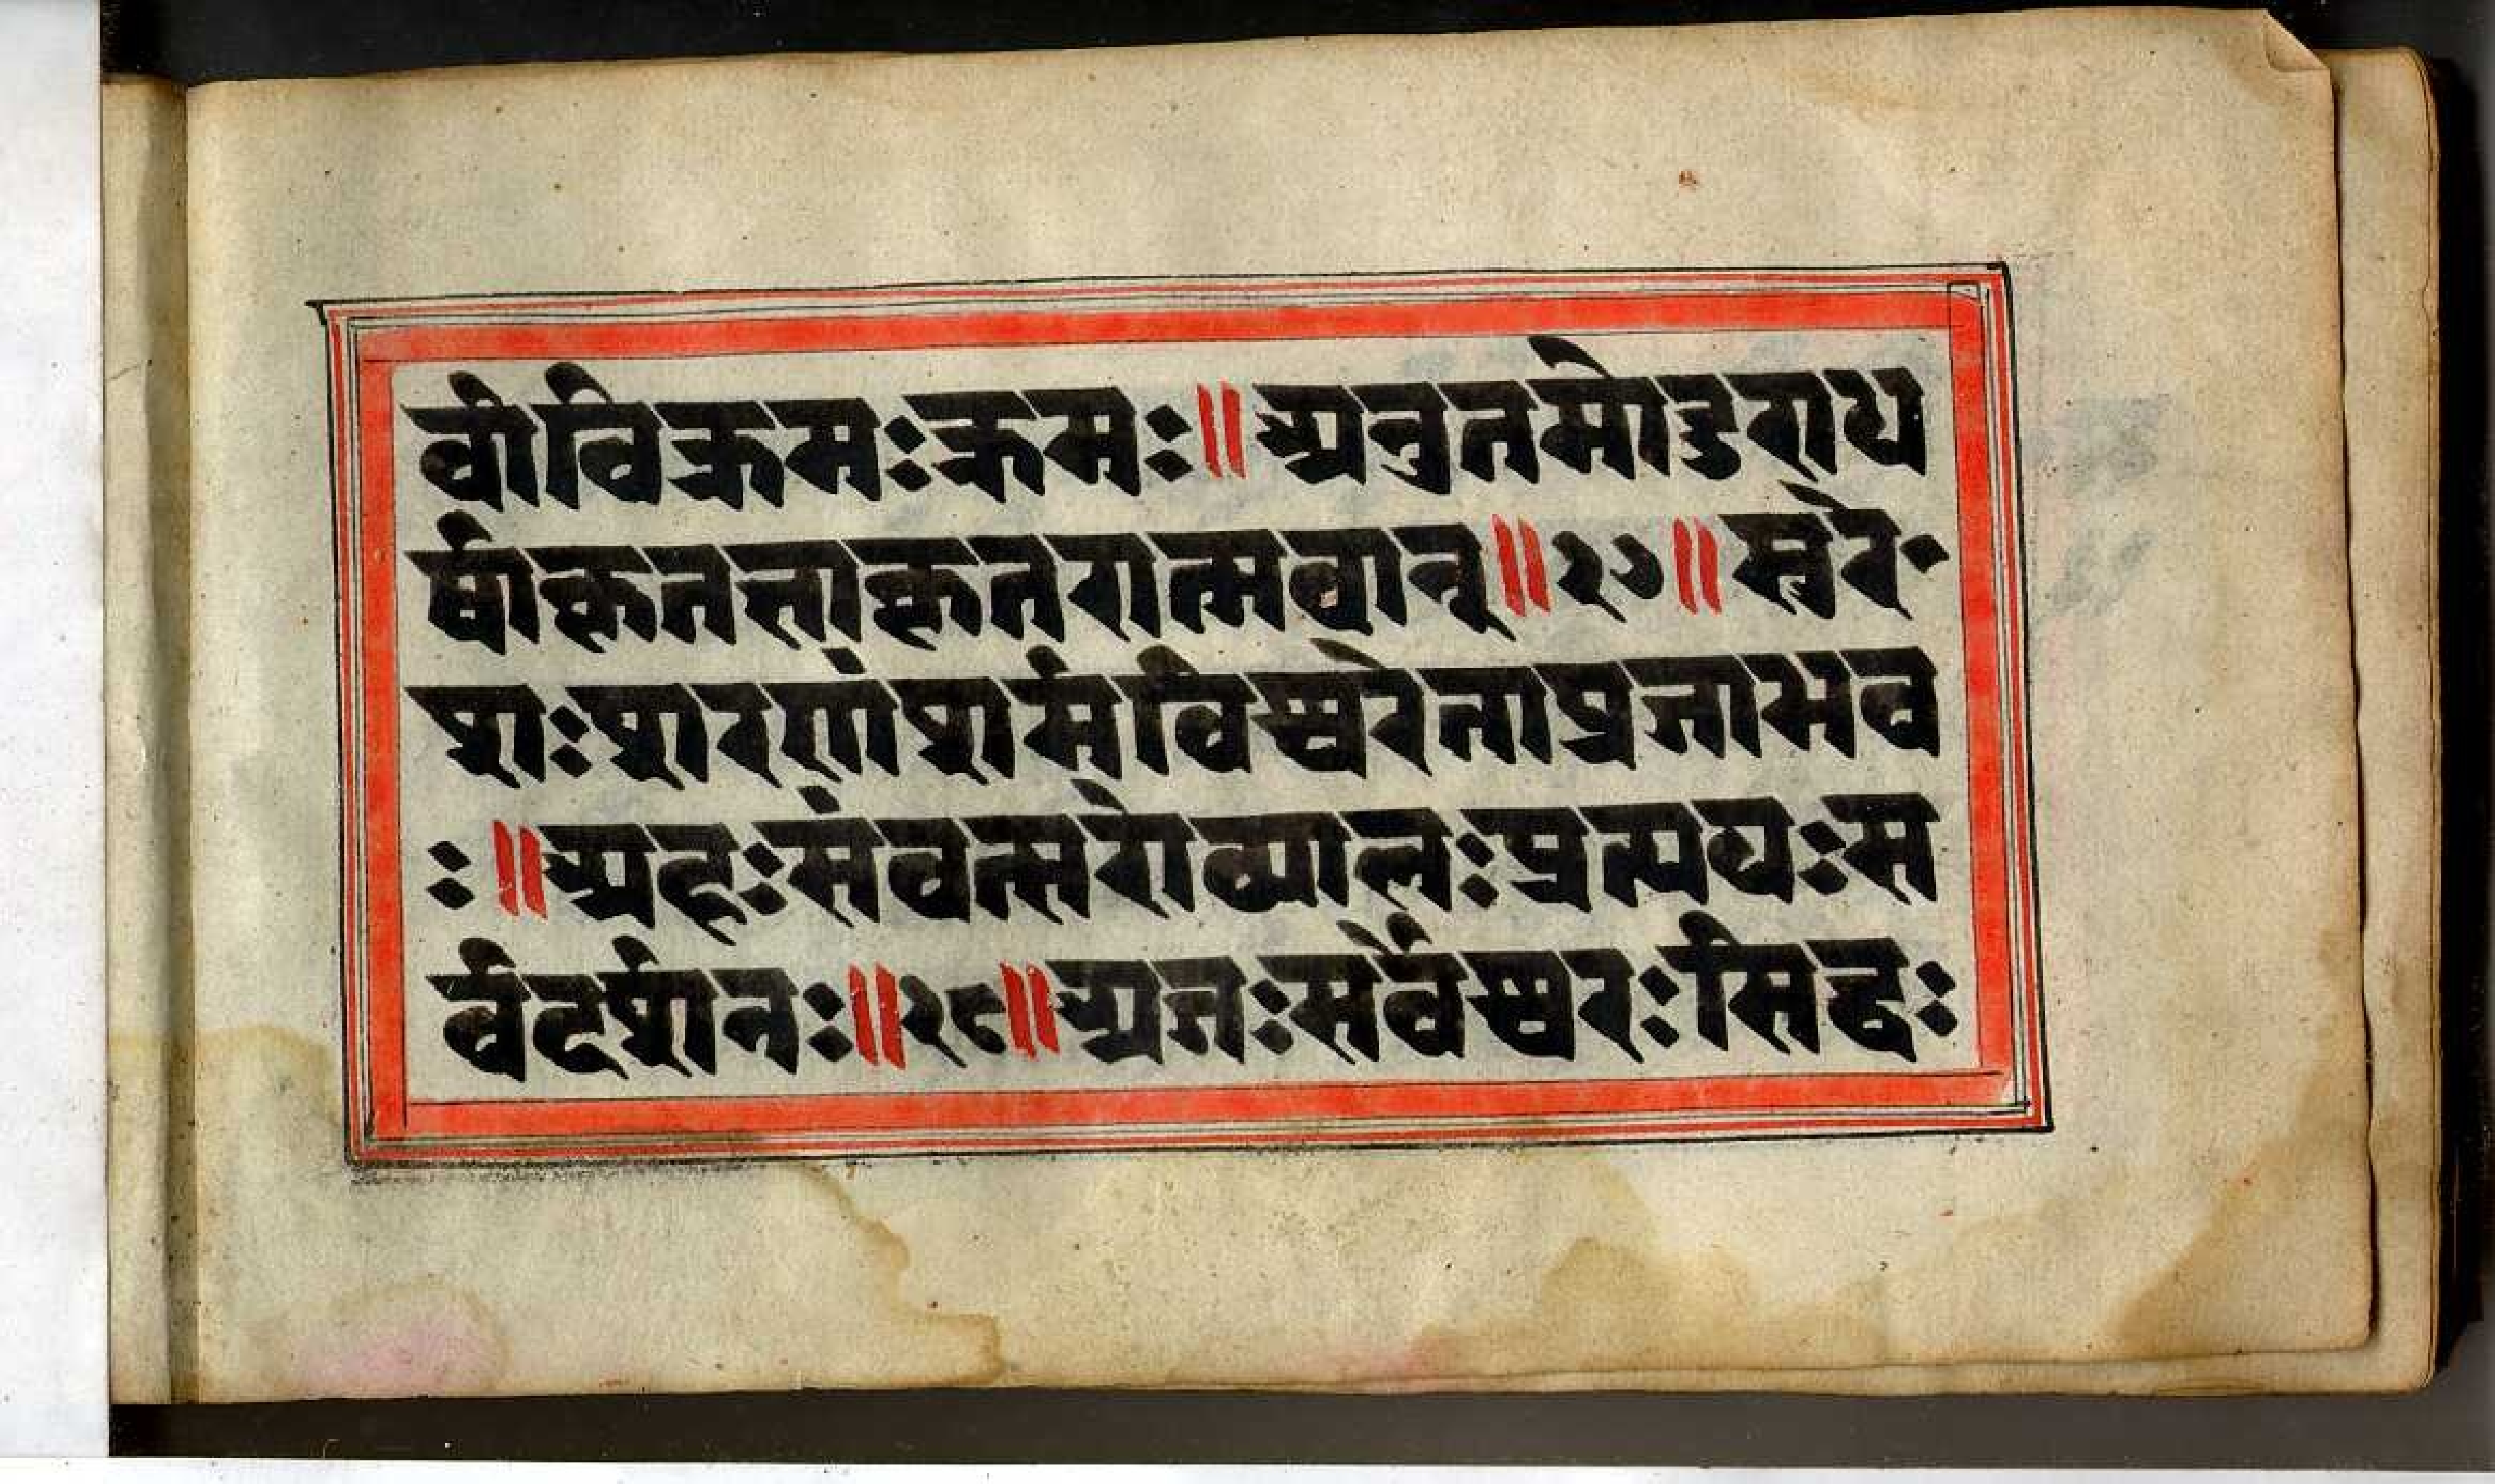 वीविक्रमःक्रमः॥अनुतमोडराध
र्षीकृततत्ताकृतरात्मवान्॥२७॥स्वरे॰
शःशरणंशर्मविश्वरेताप्रजाभव
ः॥अहःसंवत्सरोव्यालःप्रत्ययःस
र्वदर्शनः॥२८॥अजःसर्वेश्वरःसिद्धः